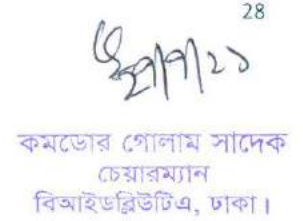 28
কমডোর গোলাম সাদেক
চেয়ারম্যান
বিআইডব্লিউটিএ, ঢাকা।